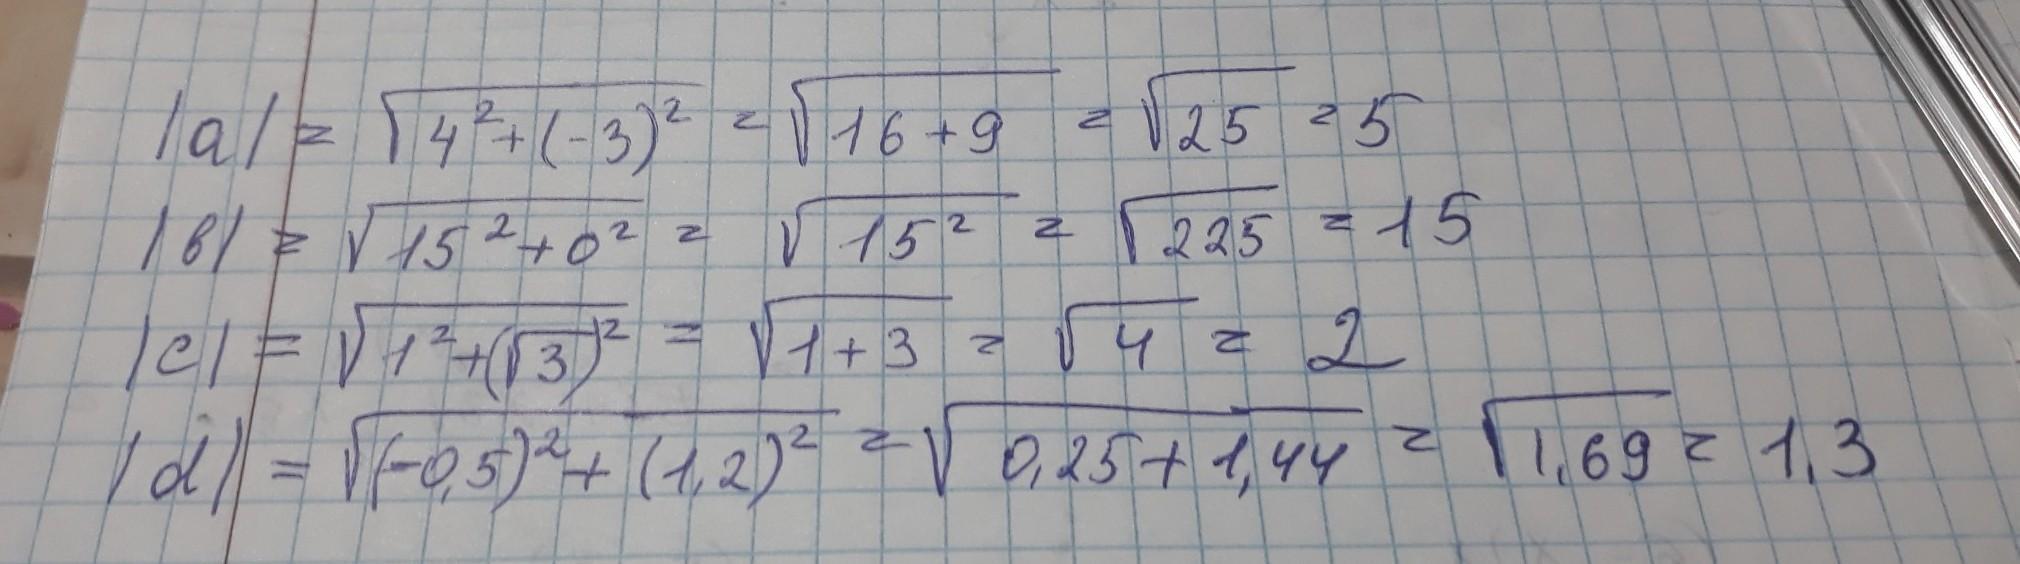 |a| = √(4² + (-3)²) = √(16 + 9) = √25 = 5
|в| = √(15² + 0²) = √(15²) = √225 = 15
|c| = √(1² + (√3)²) = √(1 + 3) = √4 = 2
|d| = √((-0,5)² + (1,2)²) = √(0,25 + 1,44) = √1,69 = 1,3